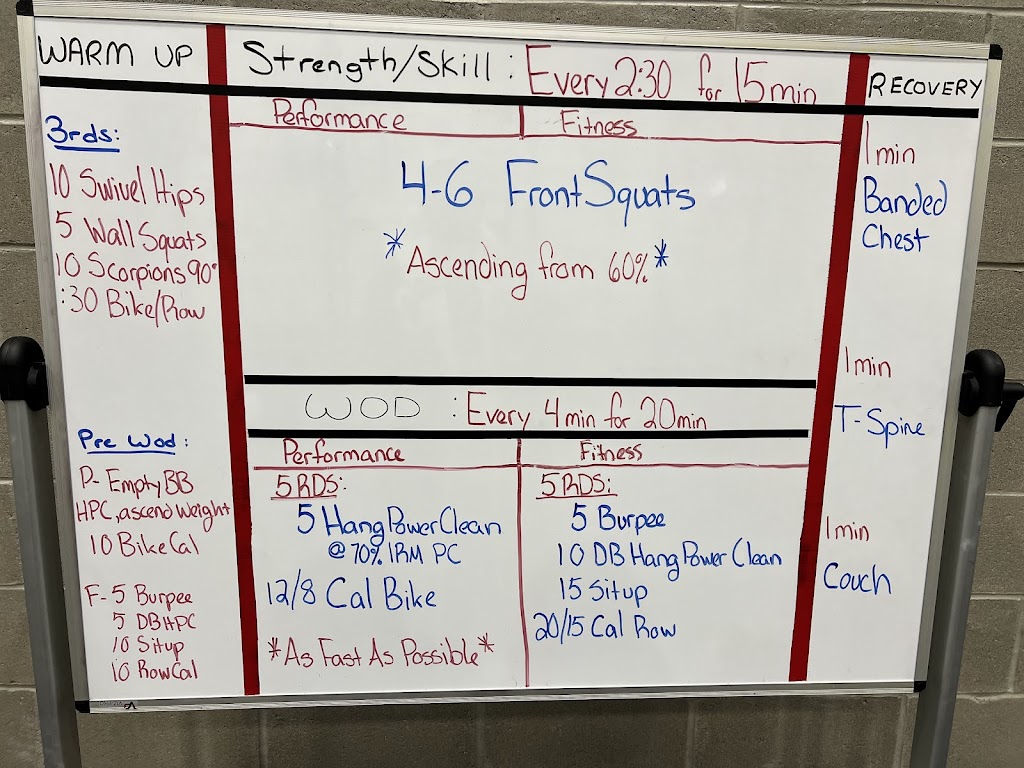 WARM UP
3rds:
10 Swivel Hips
5 Wall Squats
10 Scorpions 90°
:30 Bike/Row
Pre Wod:
P- Empty BB
HPC, ascend weight
10 Bike Cal
F- 5 Burpee
5 DB HPC
10 Situp
10 Row Cal
Strength/Skill : Every 2:30 for 15 min
Performance Fitness
4-6 Front Squats
*Ascending from 60%*
WOD : Every 4 min for 20 min
Performance
5 RDS:
5 Hang Power Clean
@ 70% 1RM PC
12/8 Cal Bike
*As Fast As Possible*
Fitness
5 RDS:
5 Burpee
10 DB Hang Power Clean
15 Situp
20/15 Cal Row
RECOVERY
1 min
Banded
Chest
1 min
T-Spine
1 min
Couch